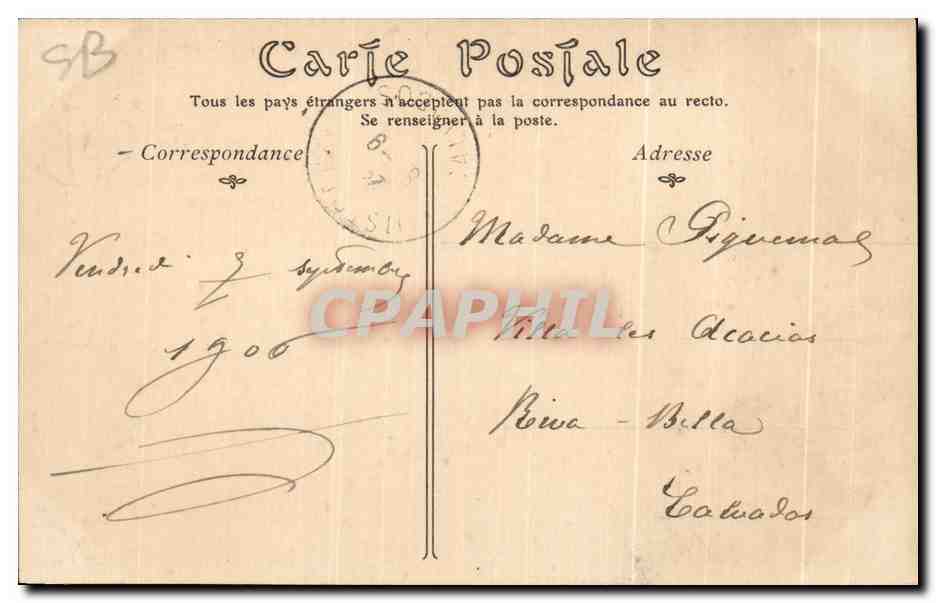 SB
Carte Postale
Tous les pays étrangers n'acceptent pas la correspondance au recto.
Se renseigner à la poste.
Correspondance
Adresse
Vendredi 7 septembre
1906
Madame Piguemal
Villa les Acacias
Riva-Bella
Calvados
CPAPHIL